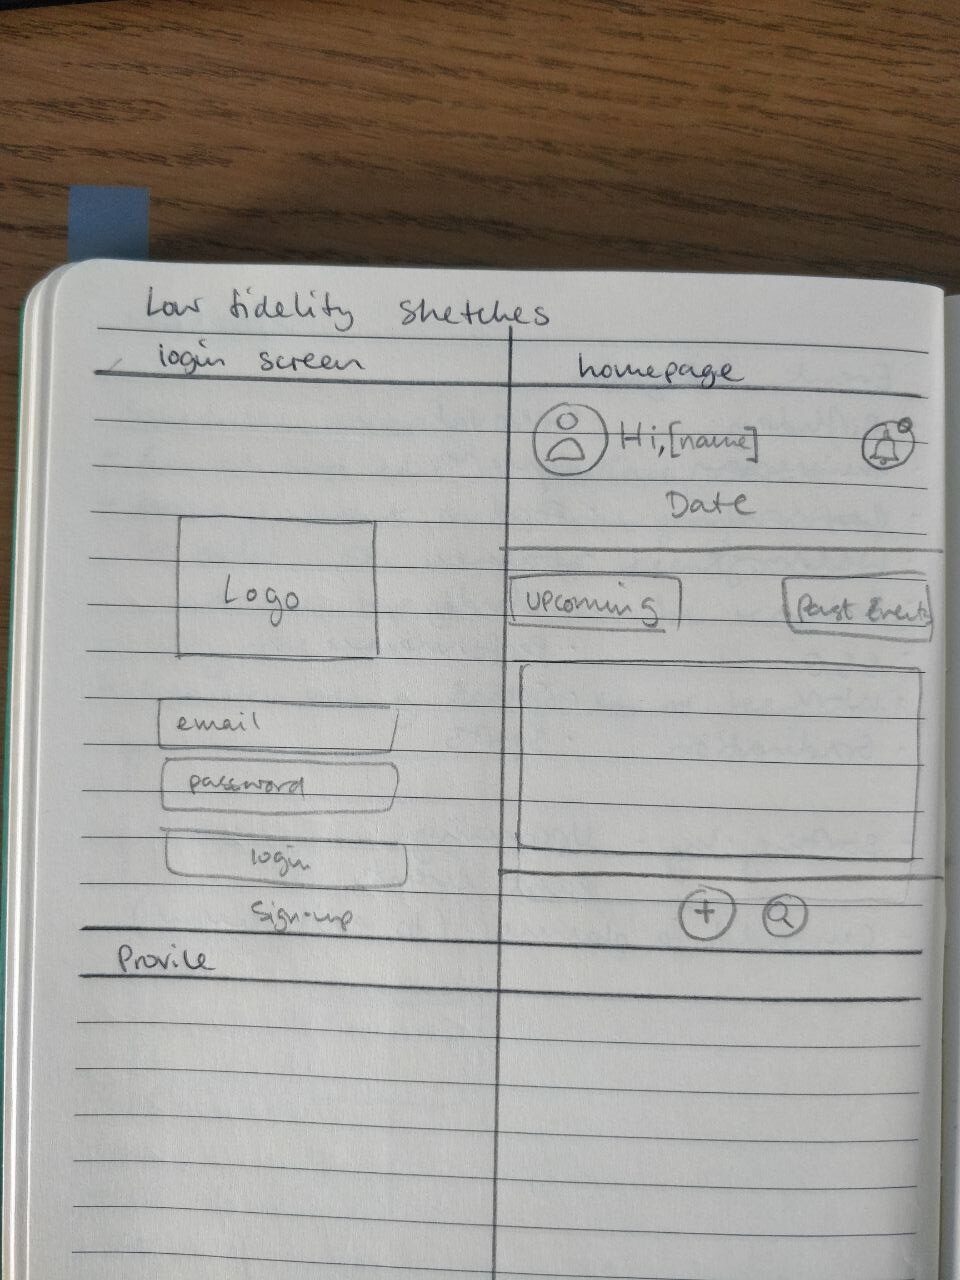 Low fidelity sketches
login screen
Logo
email
password
login
Sign-up
homepage
Hi, [name]
Date
upcoming
Past Events
Provile